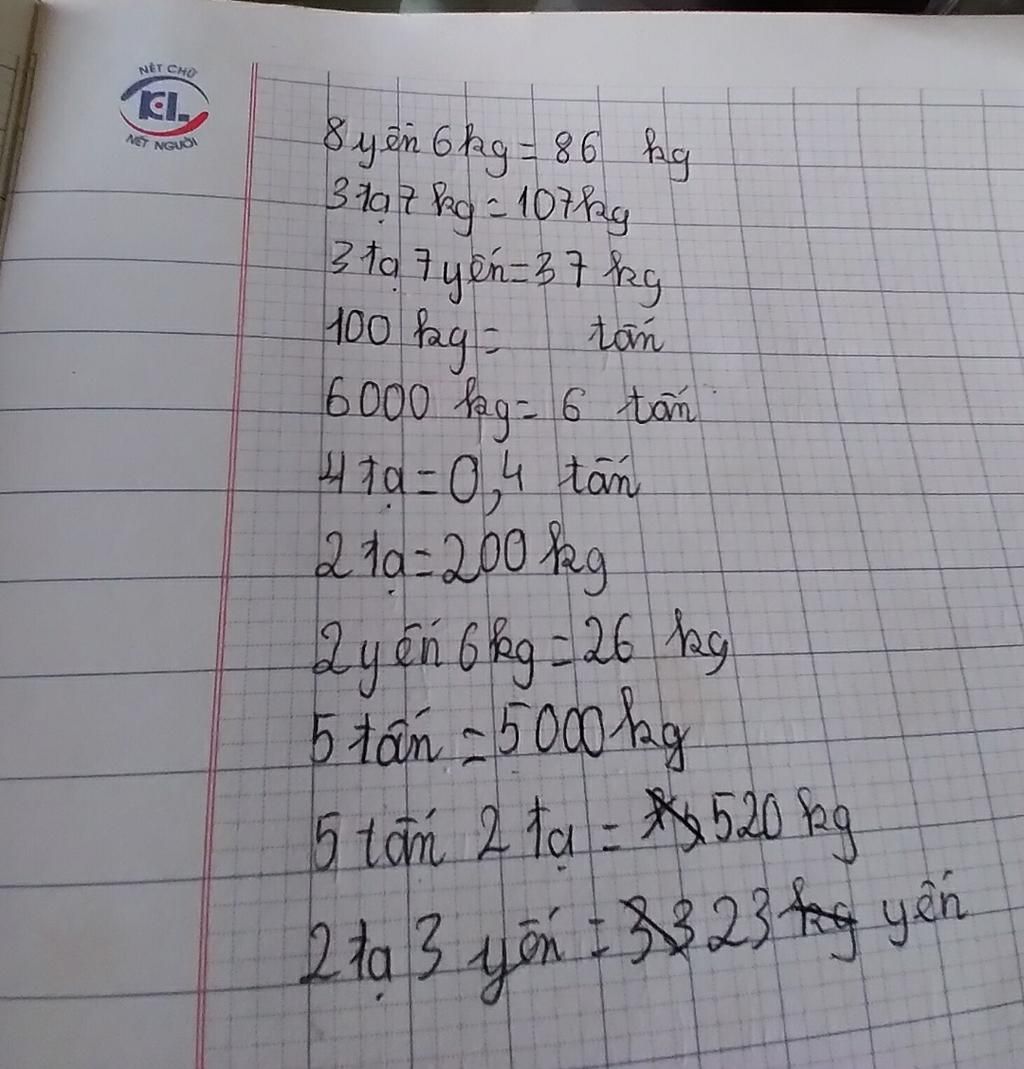 NÉT CHỮ
KL
NẾT NGƯỜI
8 yến 6 kg = 86 kg
3 tạ 7 kg = 107 kg
3 tạ 7 yến = 37 kg
100 kg = tấn
6000 kg = 6 tấn
4 tạ = 0,4 tấn
2 tạ = 200 kg
2 yến 6 kg = 26 kg
5 tấn = 5000 kg
5 tấn 2 tạ = 520 kg
2 tạ 3 yến = 33 23 kg yến